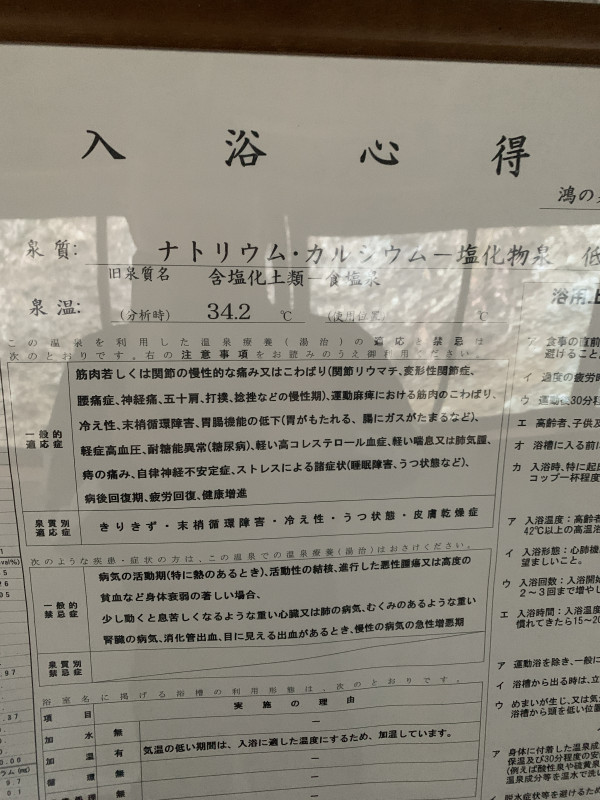 入浴心得
鴻の
泉質: ナトリウム・カルシウム－塩化物泉 低
旧泉質名 含塩化土類－食塩泉
泉温: (分析時) 34.2 ℃ (使用位置) ℃
この温泉を利用した温泉療養(湯治)の適応と禁忌は
次のとおりです。右の注意事項をお読みのうえ御利用ください。
一般的
適応症
筋肉若しくは関節の慢性的な痛み又はこわばり(関節リウマチ、変形性関節症、
腰痛症、神経痛、五十肩、打撲、捻挫などの慢性期)、運動麻痺における筋肉のこわばり、
冷え性、末梢循環障害、胃腸機能の低下(胃がもたれる、腸にガスがたまるなど)、
軽症高血圧、耐糖能異常(糖尿病)、軽い高コレステロール血症、軽い喘息又は肺気腫、
痔の痛み、自律神経不安定症、ストレスによる諸症状(睡眠障害、うつ状態など)、
病後回復期、疲労回復、健康増進
泉質別
適応症
きりきず・末梢循環障害・冷え性・うつ状態・皮膚乾燥症
次のような疾患・症状の方は、この温泉での温泉療養(湯治)はおさけください。
一般的
禁忌症
病気の活動期(特に熱のあるとき)、活動性の結核、進行した悪性腫瘍又は高度の
貧血など身体衰弱の著しい場合、
少し動くと息苦しくなるような重い心臓又は肺の病気、むくみのあるような重い
腎臓の病気、消化管出血、目に見える出血があるとき、慢性の病気の急性増悪期
泉質別
禁忌症
浴室名に掲げる浴槽の利用形態は、次のとおりです。
項目 実施の理由
加水 無 －
加温 有 気温の低い期間は、入浴に適した温度にするため、加温しています。
循環 無 －
無 －
浴用上
ア 食事の直前
避けること
イ 過度の疲労時
ウ 運動後30分程
エ 高齢者、子供及
オ 浴槽に入る前に
カ 入浴時、特に起床
コップ一杯程度
ア 入浴温度:高齢者
42℃以上の高温浴
イ 入浴形態:心肺機
望ましいこと。
ウ 入浴回数:入浴開始
2～3回まで増やし
エ 入浴時間:入浴温度
慣れてきたら15～20
ア 運動浴を除き、一般
イ 浴槽から出る時は、立
ウ めまいが生じ、又は気
浴槽から頭を低い位置
ア 身体に付着した温泉成
保温及び30分程度の安
(例えば酸性泉や硫黄泉
温泉成分等を温水で洗い
イ 脱水症状等を避けるため